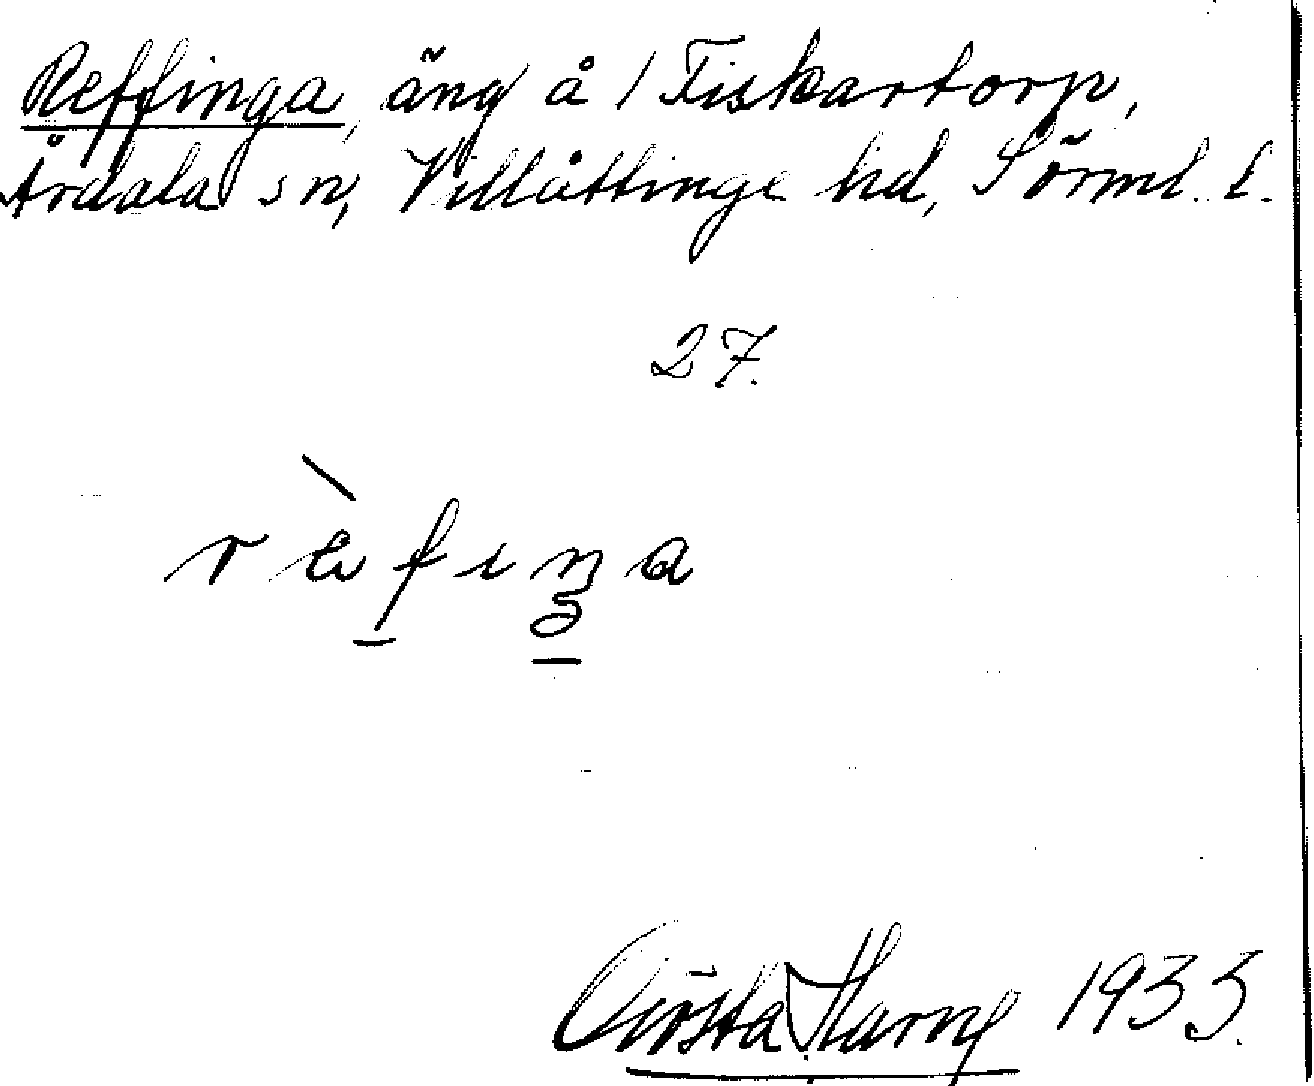 Reffinga, äng å 1 Fiskartorp,
Årdala sn, Villåttinge hd, Sörml. l.
27.
Gösta Harny 1933.